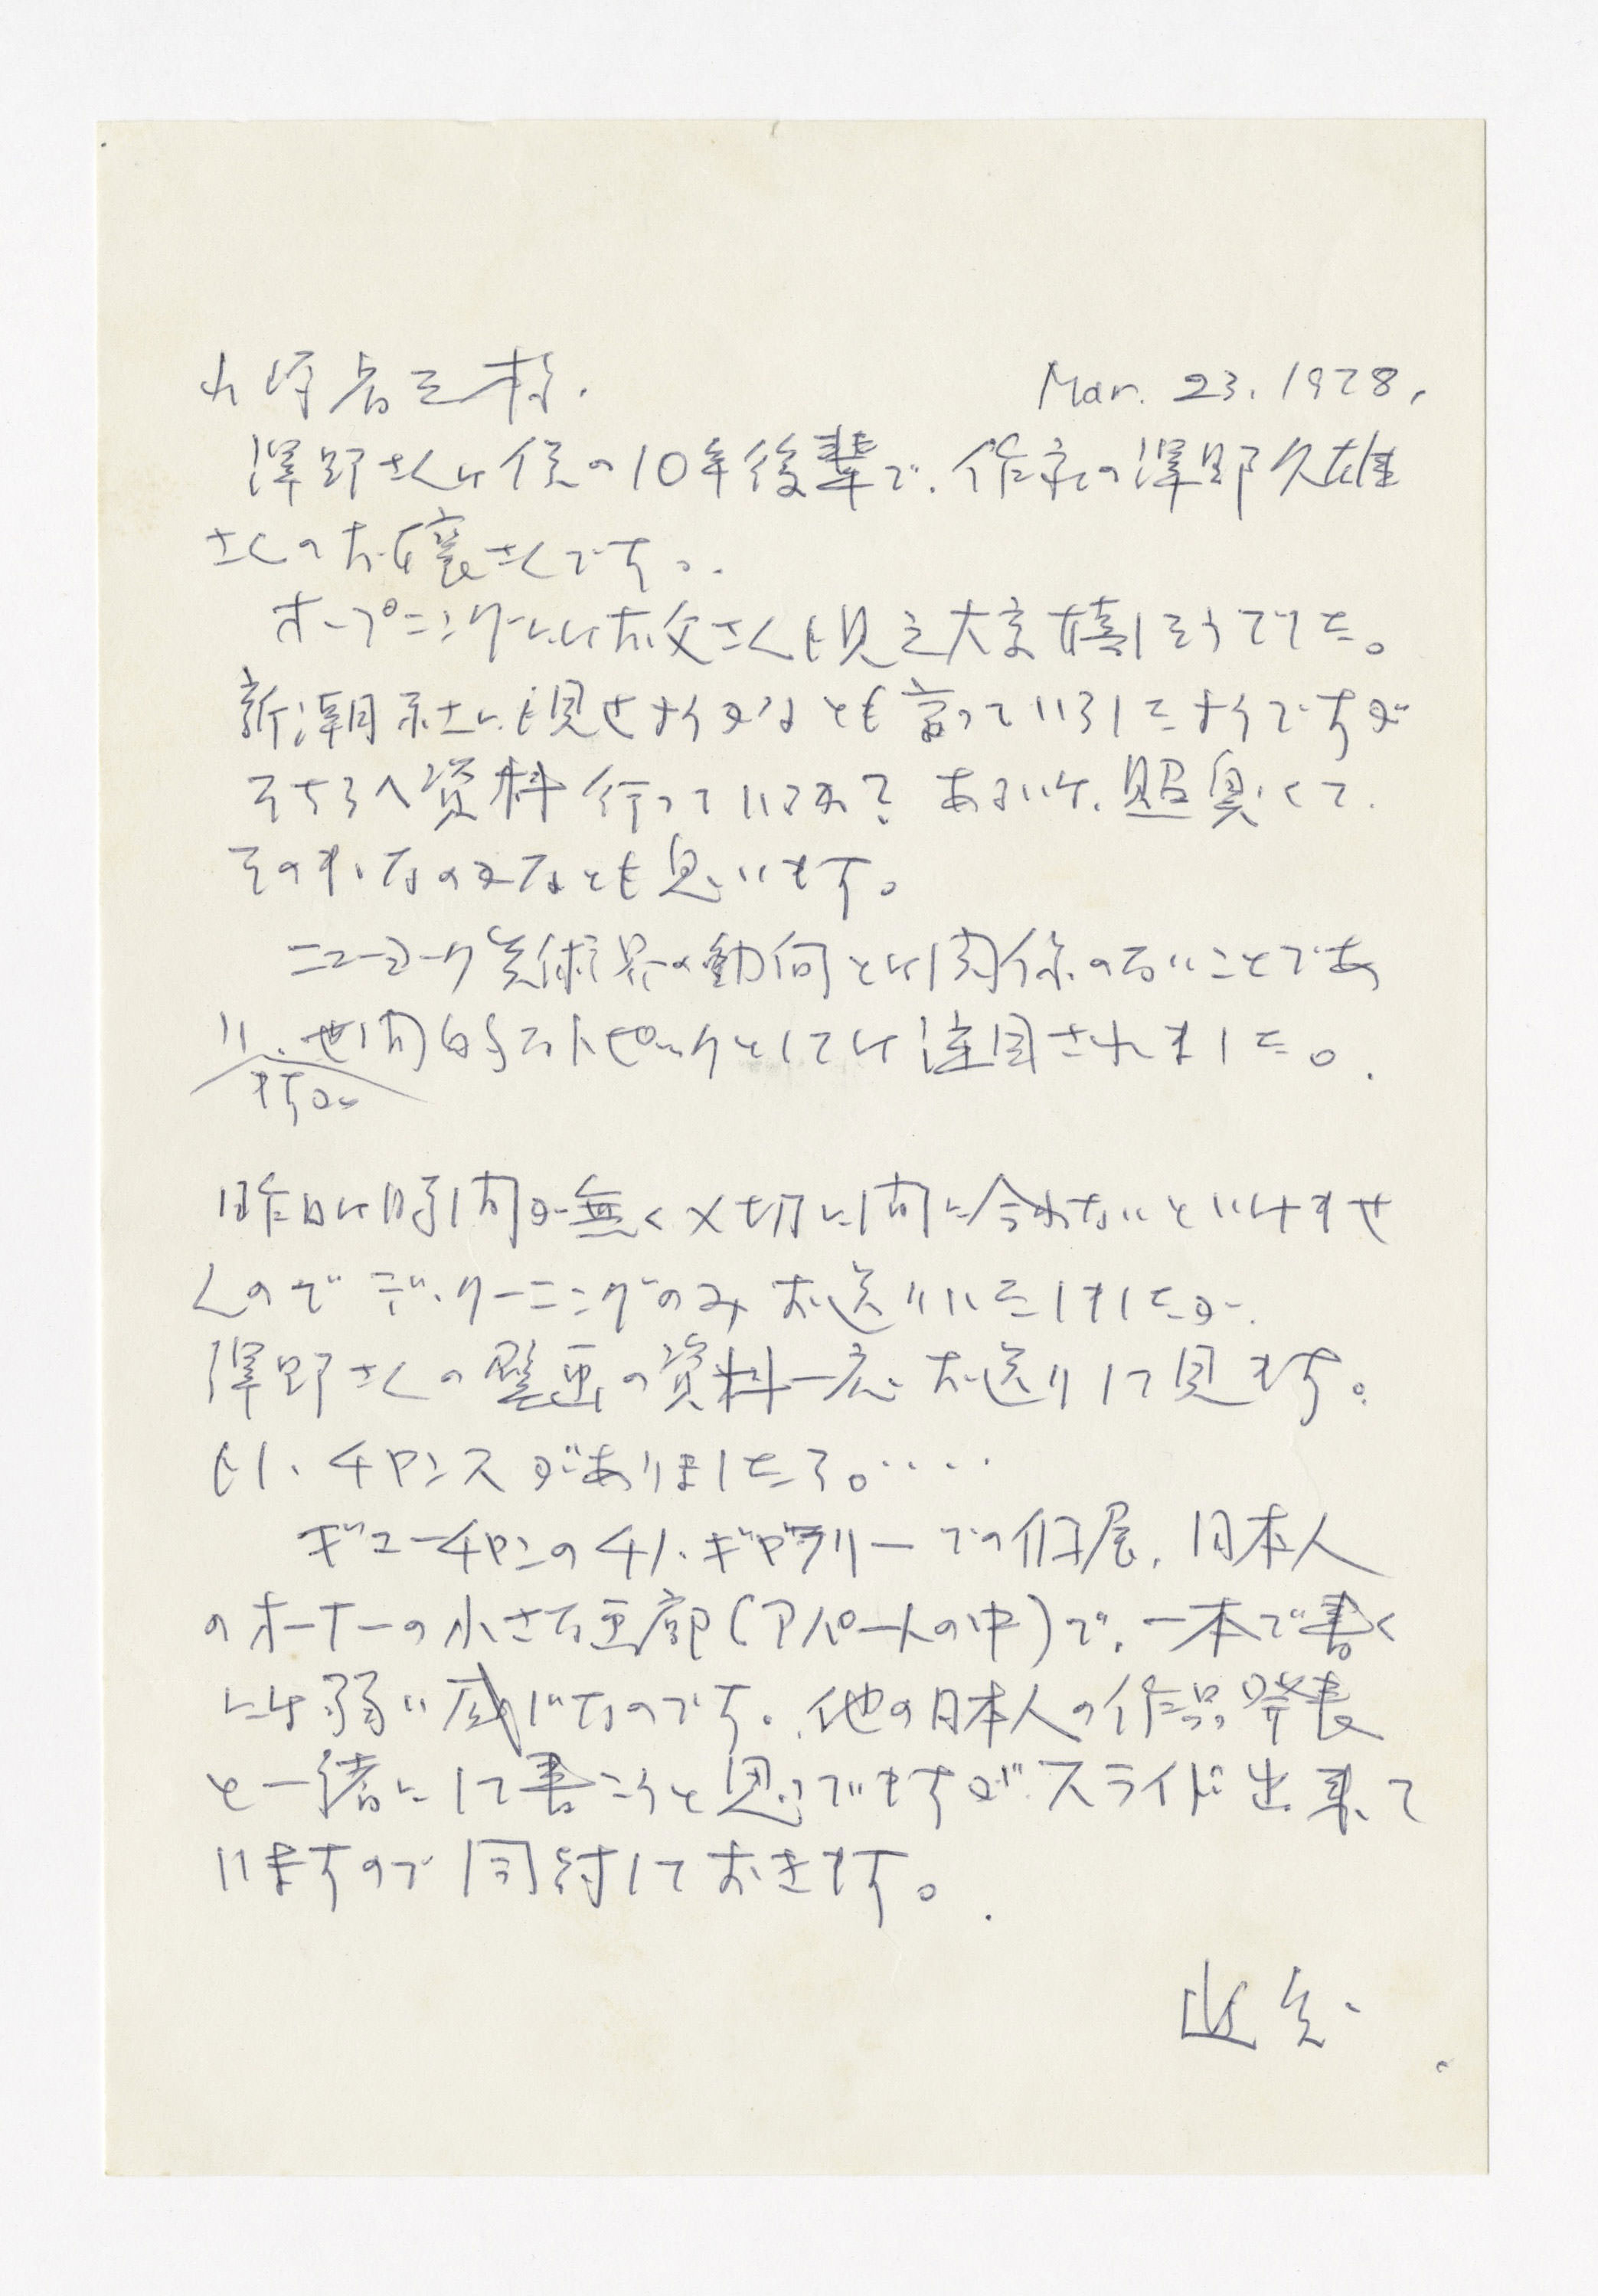 山崎省三様. Mar. 23. 1978,
澤野さんは僕の10年後輩で、作家の澤野久雄
さんのお嬢さんです。
オープニングにはお父さんも見え大変嬉しそうでした。
新潮社にも見せなくかなとも言っていらしたようですが
そちらへ資料行っているか? あるいは、照臭くて、
そのままなのかなとも思います。
ニューヨーク美術界の動向とは関係のないことであ
い、世間的なトピックとしては注目されました。
ますが
昨日は時間が無く〆切に間に合わないといけませ
んので デ・クーニングのみ お送りいたしましたが、
澤野さんの壁画の資料一応お送りして見ます。
もし、チャンスがありましたら。‥‥
ギューチャンの41.ギャラリーでの個展、日本人
のオーナーの小さな画廊(アパートの中)で、一本で書く
には弱い感じなのです。他の日本人の作品発表
と一緒にして書こうと思ってますが スライド出来て
いますので同封しておきます。